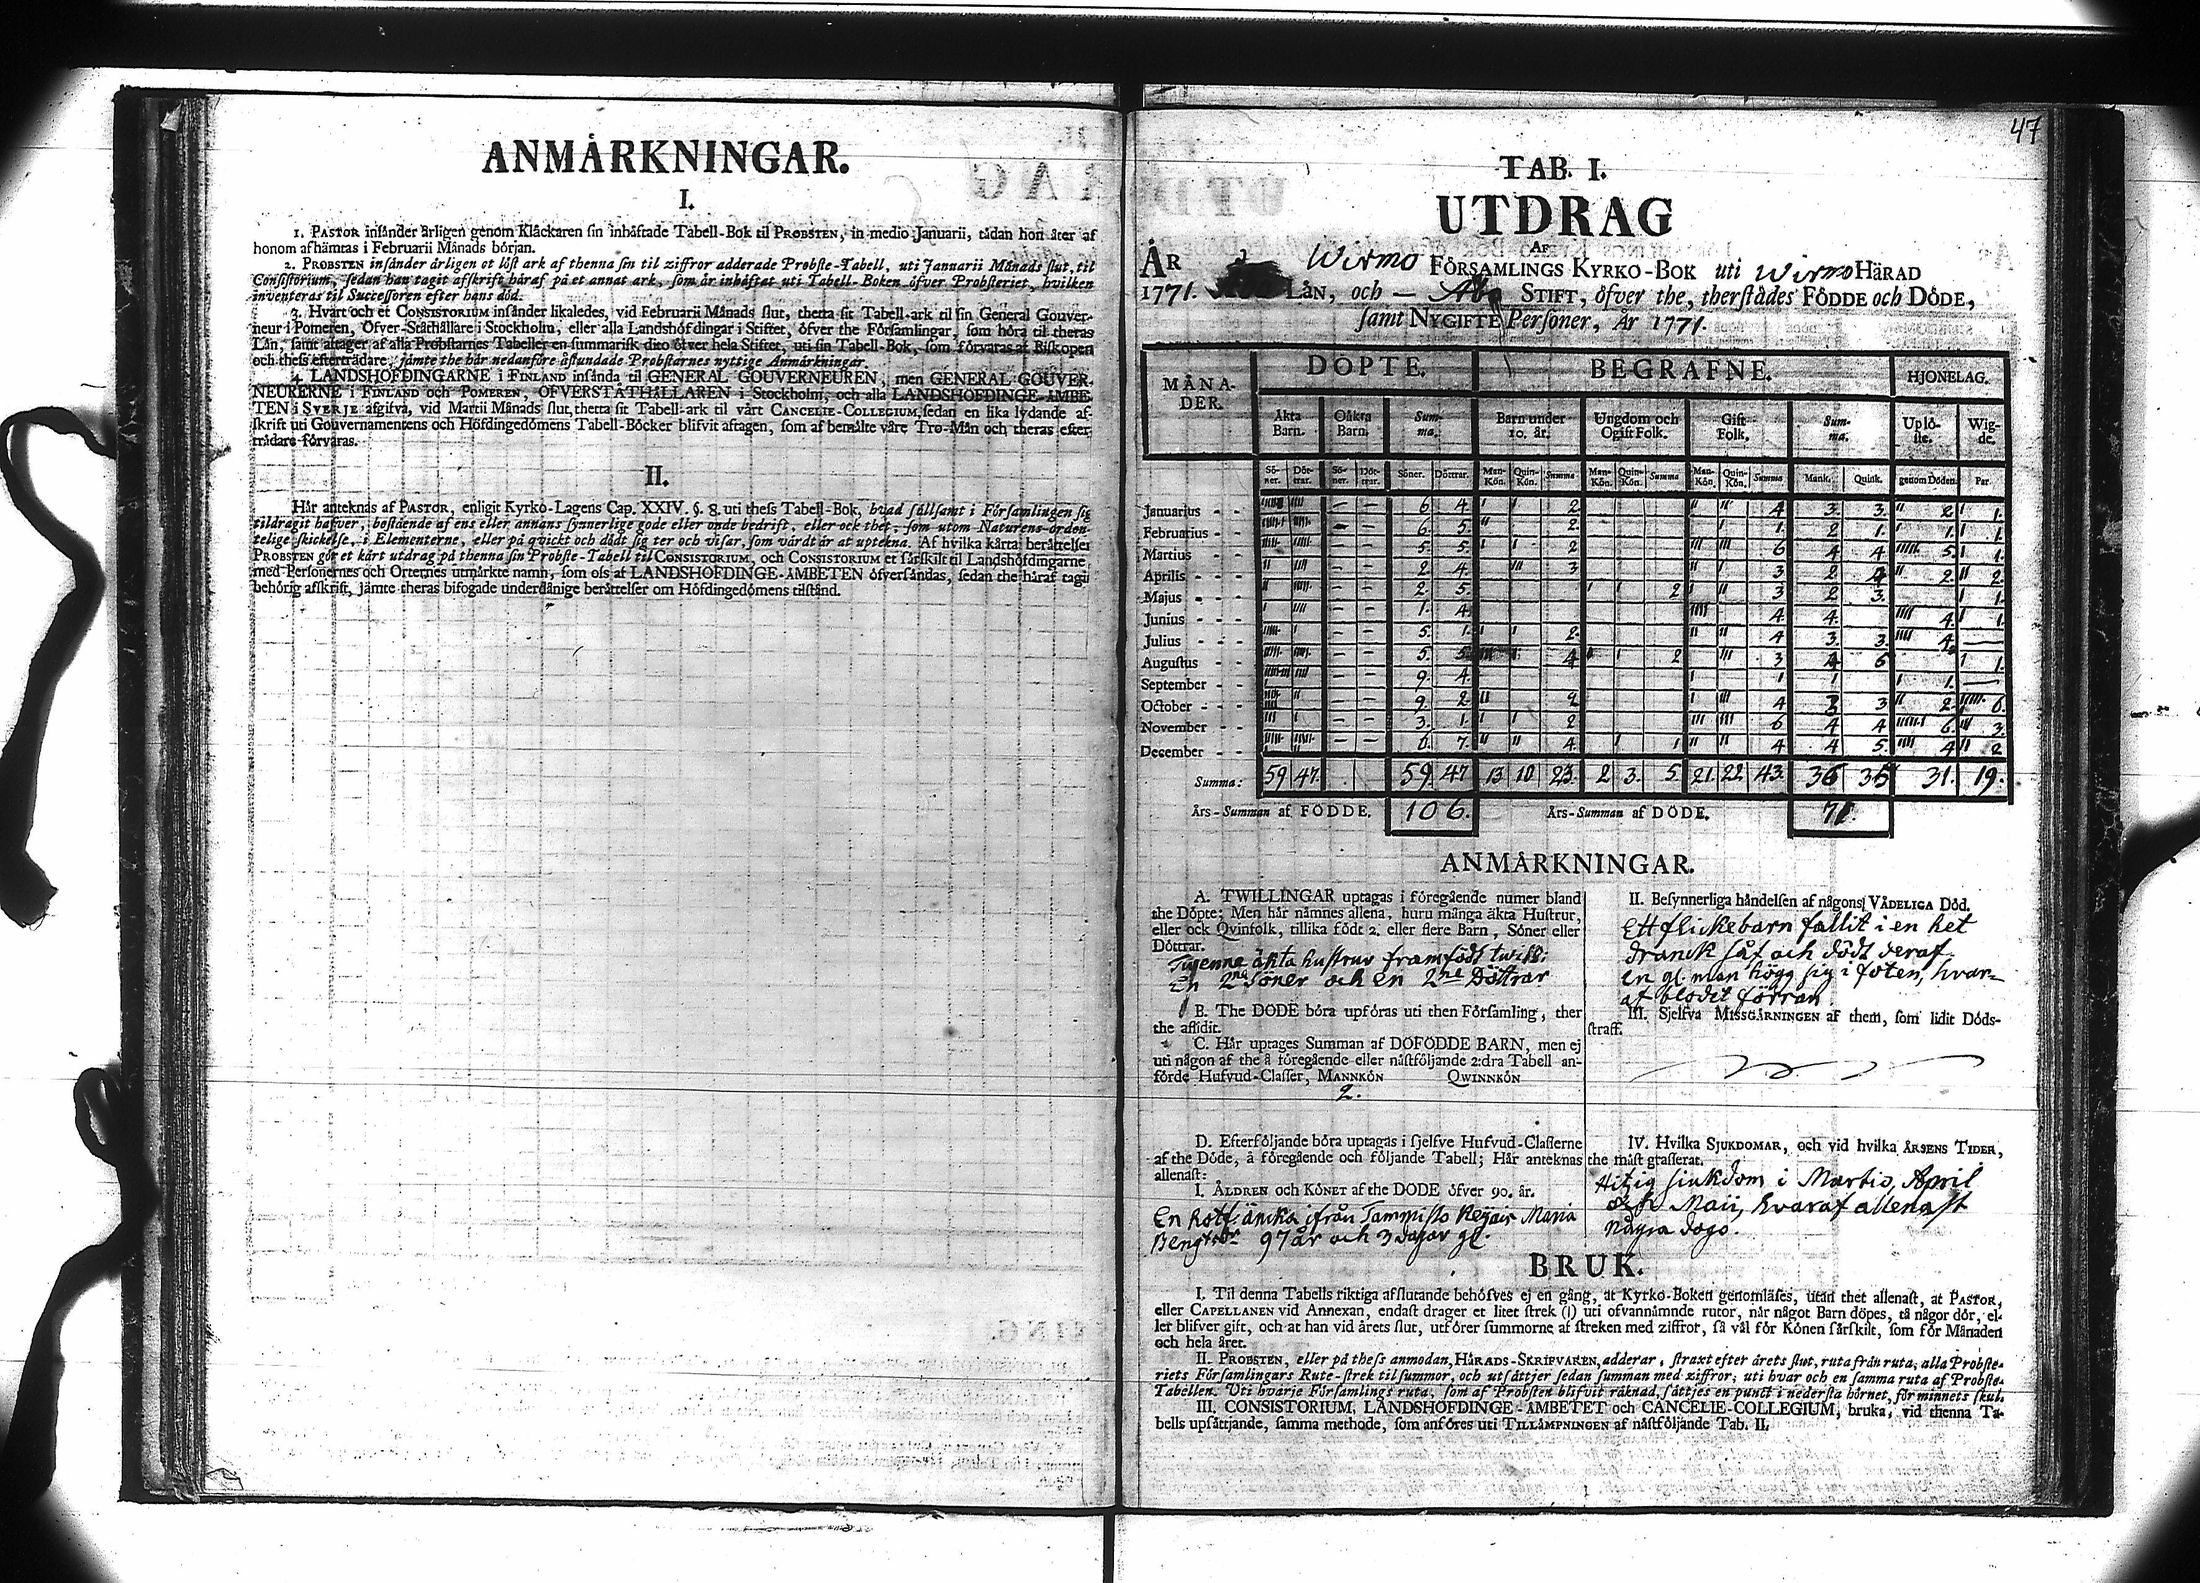 ANMÅRKNINGAR.
I.
1. PASTOR insånder årligen genom Klåckaren sin inhåftade Tabell-Bok til PROBSTEN, in medio Januarii, tådan hon åter af
honom afhåmtas i Februarii Månads början.
2. PROBSTEN insånder årligen et löst ark af thenna sin til ziffror adderade Probste-Tabell, uti Januarii Månads slut, til
Consistorium, sedan han tagit afskrift håraf på et annat ark, som år inhåftat uti Tabell-Boken öfver Probsteriet, hvilken
inventeras til Successoren efter hans död.
3. Hvart och et CONSISTORIUM insånder likaledes, vid Februarii Månads slut, thetta sit Tabell-ark til sin General Gouver-
neur i Pomeren, Öfver-Ståthållare i Stockholm, eller alla Landshöfdingar i Stiftet, öfver the Församlingar, som höra til theras
Lån, samt aftager af alla Probstarnes Tabeller en summarisk dito öfver hela Stiftet, uti sin Tabell-Bok, som förvaras af Biskopen
och thess eftertrådare, jåmte the hår nedanföre åstundade Probstarnes nyttige Anmårkningar.
4. LANDSHÖFDINGARNE i FINLAND insånda til GENERAL GOUVERNEUREN, men GENERAL GOUVER-
NEURERNE i FINLAND och POMEREN, ÖFVERSTÅTHÅLLAREN i Stockholm, och alla LANDSHÖFDINGE-ÅMBE-
TEN i SVERJE afgifva, vid Martii Månads slut, thetta sit Tabell-ark til vårt CANCELIE-COLLEGIUM, sedan en lika lydande af-
skrift uti Gouvernamentens och Höfdingedömens Tabell-Böcker blifvit aftagen, som af bemålte våre Tro-Mån och theras efter-
trådare förvaras.
II.
Hår anteknas af PASTOR, enligit Kyrko-Lagens Cap. XXIV. §. 8. uti thess Tabell-Bok, hvad sållsamt i Församlingen sig
tildragit hafver, bestående af ens eller annans synnerlige gode eller onde bedrift, eller ock thet, som utom Naturens orden-
telige skickelse, i Elementerne, eller på qvickt och dödt sig ter och visar, som vårdt år at uptekna. Af hvilka kårta beråttelser
PROBSTEN gör et kårt utdrag på thenna sin Probste-Tabell til CONSISTORIUM, och CONSISTORIUM et sårskilt til Landshöfdingarne,
med Personernes och Orternes utmårkte namn, som oss af LANDSHÖFDINGE-ÅMBETEN öfversåndas, sedan the håraf tagit
behörig afskrift, jåmte theras bifogade underdånige beråttelser om Höfdingedömens tilstånd.
47
TAB. I.
UTDRAG
AF
ÅR Wirmo FÖRSAMLINGS KYRKO-BOK uti Wirmo HÄRAD
1771. LÅN, och — Åbo STIFT, öfver the, therstådes FÖDDE och DÖDE,
samt NYGIFTE Personer, År 1771.
MÅNA-DER. DÖPTE. BEGRAFNE. HJONELAG.
Äkta Barn. Oåkta Barn. Summa. Barn under 10. år. Ungdom och Ogift Folk. Gift Folk. Summa. Uplö-ste. Wig-de.
Sö-ner. Döt-trar. Sö-ner. Döt-trar. Söner. Döttrar. Man-Kön. Quin-Kön. Summa Man-Kön. Quin-Kön. Summa Man-Kön. Quin-Kön. Summa Mank. Quink. genom Döden. Par.
Januarius - - — — 6 4. 2 4 3 3. 2. 1.
Februarius - - — — 6 5. 2. 1. 2 1. 1. 1.
Martius - - — — 5. 5. 2 6 4 4 5. 1.
Aprilis - - - — — 2 4. 3 3. 2 4 2. 2.
Majus - - - — — 2. 5. 2 3 2 3. 1.
Junius - - - — — 1. 4. 4. 4. 4. 1.
Julius - - - — — 5. 1. 2. 4 3. 3. 4. —
Augustus - - — — 5. 5. 4 2 3 4 6 1.
September - - — — 9. 4. 1 1 1 1. —
October - - - — — 9. 2. 2 4 3 3 2. 6.
November - - — — 3. 1. 2 6 4 4 6. 3.
December - - — — 6. 7. 4. 1 4 4 5. 4 2
Summa: 59 47. 59. 47 13 10 23. 2 3. 5. 21. 22 43. 36 35 31. 19.
Års-Summan af FÖDDE. 106. Års-Summan af DÖDE. 71.
ANMÅRKNINGAR.
A. TWILLINGAR uptagas i föregående numer bland
the Döpte; Men hår nåmnes allena, huru många äkta Hustrur,
eller ock Qvinfolk, tillika födt 2. eller flere Barn, Söner eller
Döttrar.
Tvenne äkta hustrur framfödt twill:
En 2ne Söner och en 2ne Döttrar
B. The DÖDE böra upföras uti then Församling, ther
the aflidit.
C. Hår uptages Summan af DÖFÖDDE BARN, men ej
uti någon af the å föregående eller nåstföljande 2:dra Tabell an-
förde Hufvud-Classer, MANNKÖN QWINNKÖN
2.
D. Efterföljande böra uptagas i sjelfve Hufvud-Classerne
af the Döde, å föregående och följande Tabell; Hår anteknas
allenast:
I. ÅLDREN och KÖNET af the DÖDE öfver 90. år.
En Rotf: änka ifrån Tammisto Maria
Bengtsdr 97 år och 3 dagar gl.
II. Besynnerliga håndelsen af någons VÅDELIGA Död.
Ett flickebarn fallit i en het
dranck såf och dödt deraf.
En gl. man högg sig i foten, hvar-
af blodet förran.
III. Sjelfva MISSGÅRNINGEN af them, som lidit Döds-
straff.
IV. Hvilka SJUKDOMAR, och vid hvilka ÅRSENS TIDER,
the måst grasserat.
Hitzig siukdom i Martio, April
och Maii, hvaraf allenast
några dogo.
BRUK.
I. Til denna Tabells riktiga afslutande behöfves ej en gång, at Kyrko-Boken genomlåses, utan thet allenast, at PASTOR,
eller CAPELLANEN vid Annexan, endast drager et litet strek (|) uti ofvannåmnde rutor, når något Barn döpes, tå någor dör, el-
ler blifver gift, och at han vid årets slut, utförer summorne af streken med ziffror, så vål för Könen sårskilt, som för Månaden
och hela året.
II. PROBSTEN, eller på thess anmodan, HÅRADS-SKRIFVAREN, adderar, straxt efter årets slut, ruta från ruta, alla Probste-
riets Församlingars Rute-strek til summor, och utsåttjer sedan summan med ziffror, uti hvar och en samma ruta af Probste-
Tabellen. Uti hvarje Församlings ruta, som af Probsten blifvit råknad, såttjes en punct i nedersta hörnet, för minnets skul.
III. CONSISTORIUM, LANDSHÖFDINGE-ÅMBETET och CANCELIE-COLLEGIUM, bruka, vid thenna Ta-
bells upsåttjande, samma methode, som anföres uti TILLÅMPNINGEN af nåstföljande Tab. II.